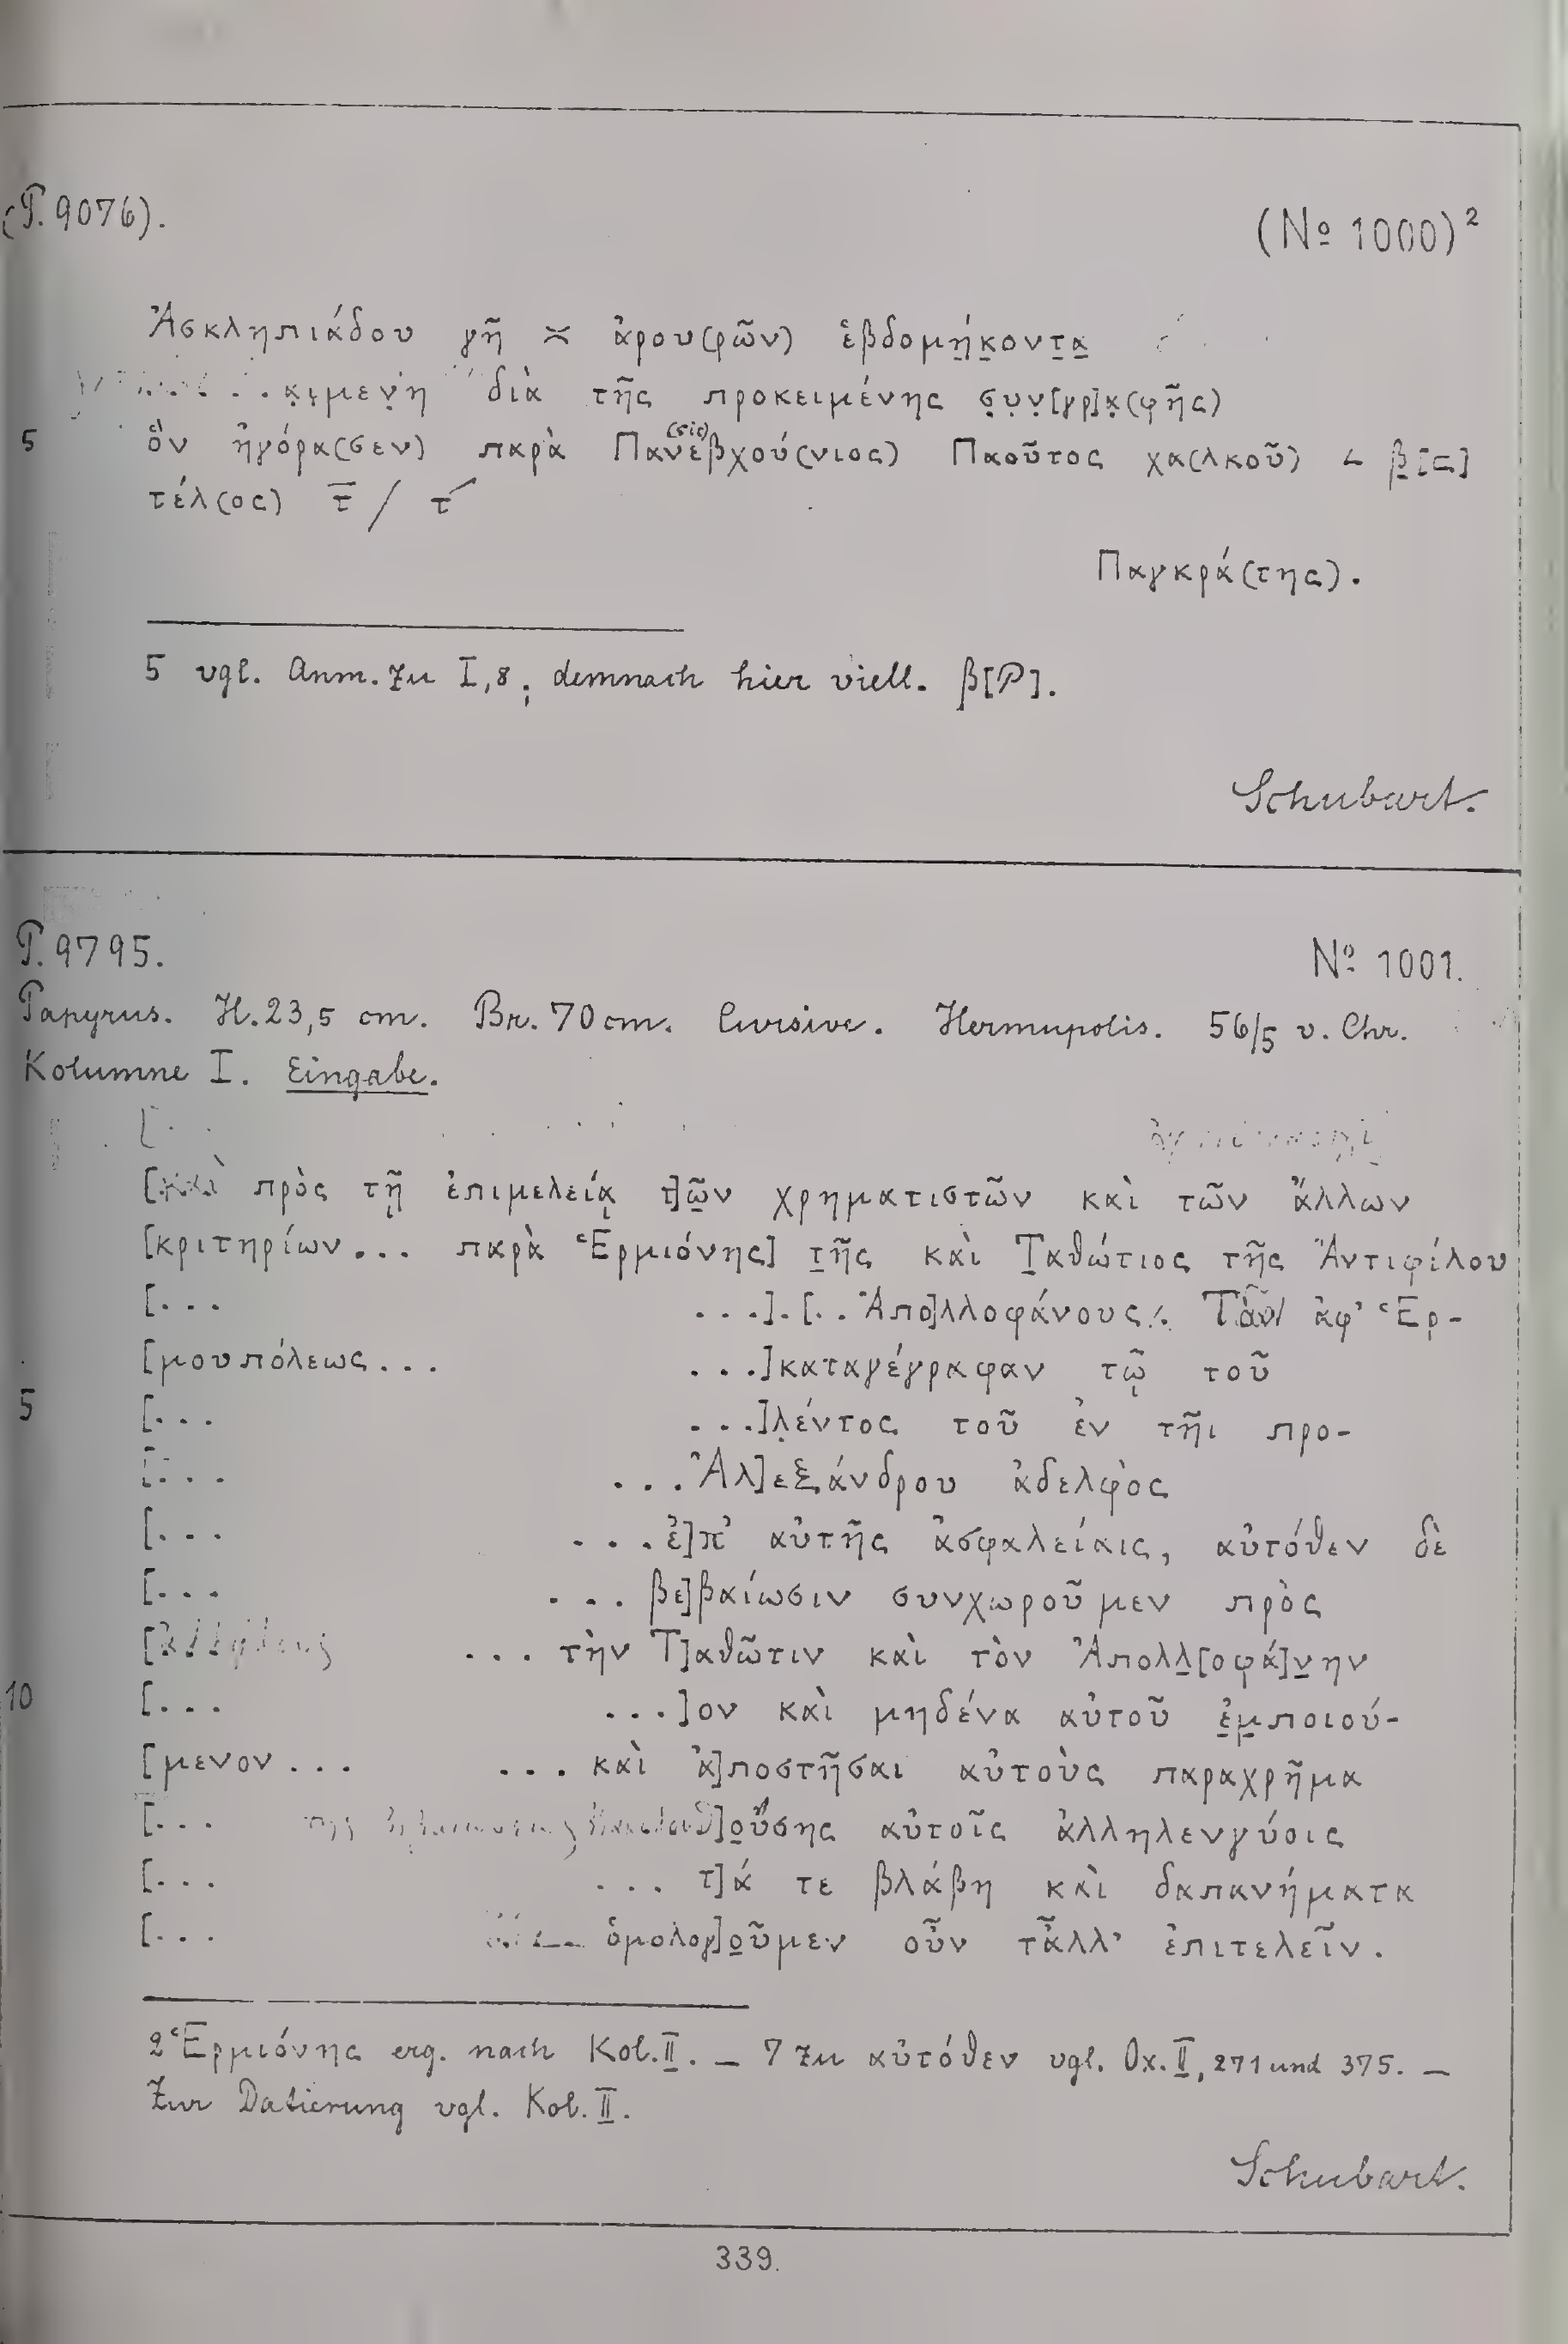 (P. 9076). (No 1000)²
Ἀσκληπιάδου γῆ ≍ ἀρου(ρῶν) ἑβδομή̣κ̣οντ̣α̣
. . κ̣ι̣μεν̣η διὰ τῆς προκειμένης σ̣υ̣ν̣[γρ]α̣(φῆς)
5 ὃν ἠγόρα(σεν) παρὰ Πανεβχού(νιος) (sic) Παοῦτος χα(λκοῦ) ∠ β̣[⊏]
τέλ(ος) τ̅ / τ´
Παγκρά(της).
5 vgl. Anm. zu I, 8; demnach hier viell. β[P].
Schubart.
P. 9795. No 1001.
Papyrus. H. 23,5 cm. Br. 70 cm. Cursive. Hermupolis. 56/5 v. Chr.
Kolumne I. Eingabe.
[. .
[καὶ πρὸς τῇ ἐπιμελείᾳ τ]ῶ̣ν χρηματιστῶν καὶ τῶν ἄλλων
[κριτηρίων... παρὰ Ἑρμιόνης] τ̣ῆς καὶ Τ̣αθώτιος τῆς Ἀντιφίλου
[... ...].[..Ἀπο]λλοφάνους. Τῶν ἀφ' Ἑρ-
[μουπόλεως... ...]καταγέγραφαν τῷ τοῦ
5 [... ...]λ̣έντος τοῦ ἐν τῆι προ-
[... ...Ἀλ]εξάνδρου ἀδελφὸς
[... ...ἐ]π' αὐτῆς ἀσφαλείαις, αὐτόθεν δὲ
[... ...βε]βαίωσιν συνχωροῦμεν πρὸς
[ἀλλήλους ...τὴν Τ]αθῶτιν καὶ τὸν Ἀπολλ̣[οφά]ν̣ην
10 [... ...]ον καὶ μηδένα αὐτοῦ ἐ̣μ̣ποιού-
[μενον... ...καὶ ἀ]ποστῆσαι αὐτοὺς παραχρῆμα
[... ]ο̣ύσης αὐτοῖς ἀλληλενγύοις
[... ...τ]ά τε βλάβη καὶ δαπανήματα
[... ὁμολογ]ο̣ῦμεν οὖν τἆλλ' ἐπιτελεῖν.
2 Ἑρμιόνης erg. nach Kol. II. — 7 zu αὐτόθεν vgl. Ox. II, 271 und 375. —
Zur Datierung vgl. Kol. II.
Schubart.
339.